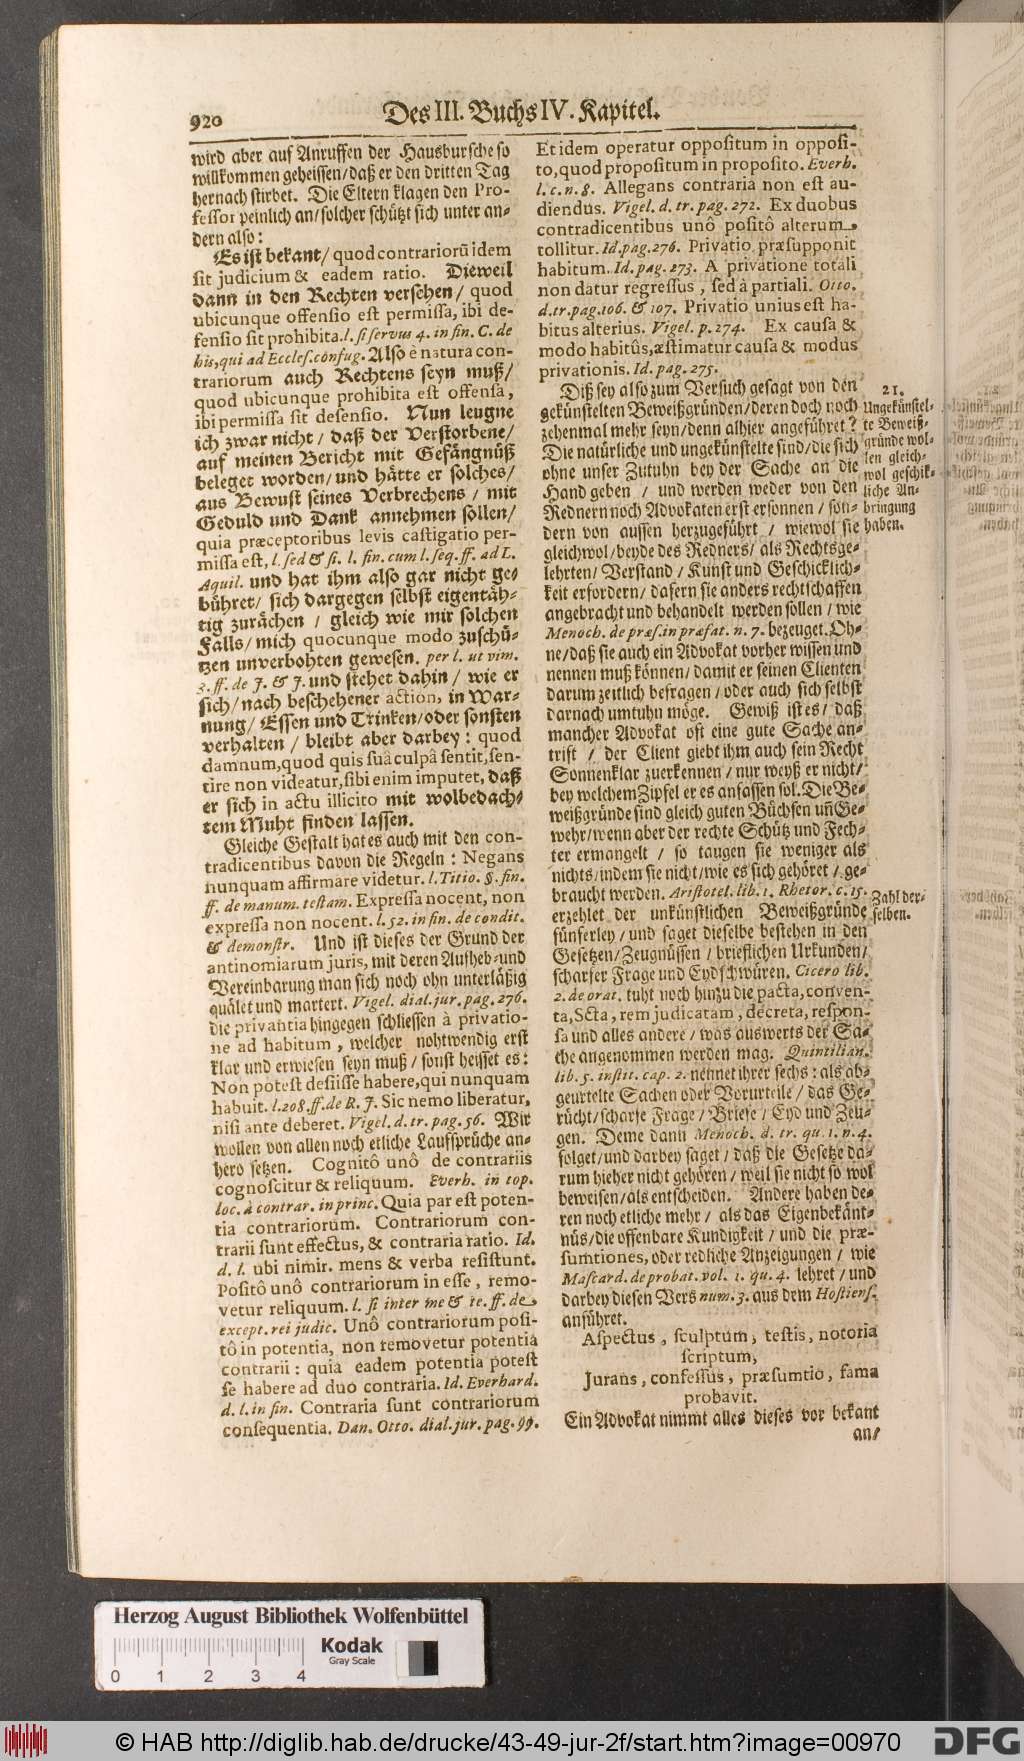 920
Des III. Buchs IV. Kapitel.
wird aber auf Anruffen der Hausbursche so
willkommen geheissen/ daß er den dritten Tag
hernach stirbet. Die Eltern klagen den Pro-
fessor peinlich an/ solcher schützt sich unter an-
dern also:
Es ist bekant/ quod contrariorũ idem
sit judicium & eadem ratio. Dieweil
dann in den Rechten versehen/ quod
ubicunque offensio est permissa, ibi de-
fensio sit prohibita. l. si servus 4. in fin. C. de
his, qui ad Eccles. confug. Also è natura con-
trariorum auch Rechtens seyn muß/
quod ubicunque prohibita est offensa,
ibi permissa sit defensio. Nun leugne
ich zwar nicht/ daß der Verstorbene/
auf meinen Bericht mit Gefängnüß
beleget worden/ und hätte er solches/
aus Bewust seines Verbrechens/ mit
Geduld und Dank annehmen sollen/
quia præceptoribus levis castigatio per-
missa est, l. sed & si. l. fin. cum l. seq. ff. ad L.
Aquil. und hat ihm also gar nicht ge-
bühret/ sich dargegen selbst eigentäh-
tig zurächen/ gleich wie mir solchen
Falls/ mich quocunque modo zuschü-
tzen unverbohten gewesen. per l. ut vim.
3. ff. de J. & J. und stehet dahin/ wie er
sich/ nach beschehener action, in War-
nung/ Essen und Trinken/ oder sonsten
verhalten/ bleibt aber darbey: quod
damnum, quod quis suâ culpâ sentit, sen-
tire non videatur, sibi enim imputet, daß
er sich in actu illicito mit wolbedach-
tem Muht finden lassen.
Gleiche Gestalt hat es auch mit den con-
tradicentibus davon die Regeln: Negans
nunquam affirmare videtur. l. Titio. §. fin.
ff. de manum. testam. Expressa nocent, non
expressa non nocent. l. 52. in fin. de condit.
& demonstr. Und ist dieses der Grund der
antinomiarum juris, mit deren Aufheb- und
Vereinbarung man sich noch ohn unterläßig
quälet und martert. Vigel. dial. jur. pag. 276.
die privantia hingegen schliessen à privatio-
ne ad habitum, welcher nohtwendig erst
klar und erwiesen seyn muß/ sonst heisset es:
Non potest desiisse habere, qui nunquam
habuit. l. 208. ff. de R. J. Sic nemo liberatur,
nisi ante deberet. Vigel. d. tr. pag. 56. Wir
wollen von allen noch etliche Laufsprüche an-
hero setzen. Cognitô unô de contrariis
cognoscitur & reliquum. Everh. in top.
loc. à contrar. in princ. Quia par est poten-
tia contrariorum. Contrariorum con-
trarii sunt effectus, & contraria ratio. Id.
d. l. ubi nimir. mens & verba resistunt.
Positô unô contrariorum in esse, remo-
vetur reliquum. l. si inter me & te. ff. de
except. rei judic. Unô contrariorum posi-
tô in potentia, non removetur potentia
contrarii: quia eadem potentia potest
se habere ad duo contraria. Id. Everhard.
d. l. in fin. Contraria sunt contrariorum
consequentia. Dan. Otto. dial. jur. pag. 99.
Et idem operatur oppositum in opposi-
to, quod propositum in proposito. Everh.
l. c. n. 8. Allegans contraria non est au-
diendus. Vigel. d. tr. pag. 272. Ex duobus
contradicentibus unô positô alterum
tollitur. Id. pag. 276. Privatio præsupponit
habitum. Id. pag. 273. A privatione totali
non datur regressus, sed à partiali. Otto.
d. tr. pag. 106. & 107. Privatio unius est ha-
bitus alterius. Vigel. p. 274. Ex causa &
modo habitûs, æstimatur causa & modus
privationis. Id. pag. 275.
Diß sey also zum Versuch gesagt von den
gekünstelten Beweißgründen/ deren doch noch
zehenmal mehr seyn/ denn alhier angeführet?
Die natürliche und ungekünstelte sind/ die sich
ohne unser Zutuhn bey der Sache an die
Hand geben/ und werden weder von den
Rednern noch Advokaten erst ersonnen/ son-
dern von aussen herzugeführt/ wiewol sie
gleichwol/ beyde des Redners/ als Rechtsge-
lehrten/ Verstand/ Kunst und Geschicklich-
keit erfordern/ dafern sie anders rechtschaffen
angebracht und behandelt werden sollen/ wie
Menoch. de præs. in præfat. n. 7. bezeuget. Oh-
ne/ daß sie auch ein Advokat vorher wissen und
nennen muß können/ damit er seinen Clienten
darum zeitlich befragen/ oder auch sich selbst
darnach umtuhn möge. Gewiß ist es/ daß
mancher Advokat oft eine gute Sache an-
trift/ der Client giebt ihm auch sein Recht
Sonnenklar zuerkennen/ nur weyß er nicht/
bey welchem Zipfel er es anfassen sol. Die Be-
weißgründe sind gleich guten Büchsen uñ Ge-
wehr/ wenn aber der rechte Schütz und Fech-
ter ermangelt/ so taugen sie weniger als
nichts/ indem sie nicht/ wie es sich gehöret/ ge-
braucht werden. Aristotel. lib. 1. Rhetor. c. 15.
erzehlet der unkünstlichen Beweißgründe
fünferley/ und saget dieselbe bestehen in den
Gesetzen/ Zeugnüssen/ brieflichen Urkunden/
scharfer Frage und Eydschwüren. Cicero lib.
2. de orat. tuht noch hinzu die pacta, conven-
ta, Scta, rem judicatam, decreta, respon-
sa und alles andere/ was auswerts der Sa-
che angenommen werden mag. Quintilian.
lib. 5. instit. cap. 2. nennet ihrer sechs: als ab-
geurtelte Sachen oder Vorurteile/ das Ge-
rücht/ scharfe Frage/ Briefe/ Eyd und Zeu-
gen. Deme dann Menoch. d. tr. qu. 1. n. 4.
folget/ und darbey saget/ daß die Gesetze da-
rum hieher nicht gehören/ weil sie nicht so wol
beweisen/ als entscheiden. Andere haben de-
ren noch etliche mehr/ als das Eigenbekänt-
nüs/ die offenbare Kundigkeit/ und die præ-
sumtiones, oder redliche Anzeigungen/ wie
Mascard. de probat. vol. 1. qu. 4. lehret/ und
darbey diesen Vers num. 3. aus dem Hostiens.
anführet.
Aspectus, sculptum, testis, notoria
scriptum,
Jurans, confessus, præsumtio, fama
probavit.
Ein Advokat nimmt alles dieses vor bekant
an/
21.
Ungekünstel-
te Beweiß-
gründe wol-
len gleich-
wol geschik-
liche An-
bringung
haben.
Zahl der-
selben.
Herzog August Bibliothek Wolfenbüttel
0 1 2 3 4
Kodak
Gray Scale
© HAB http://diglib.hab.de/drucke/43-49-jur-2f/start.htm?image=00970
DFG